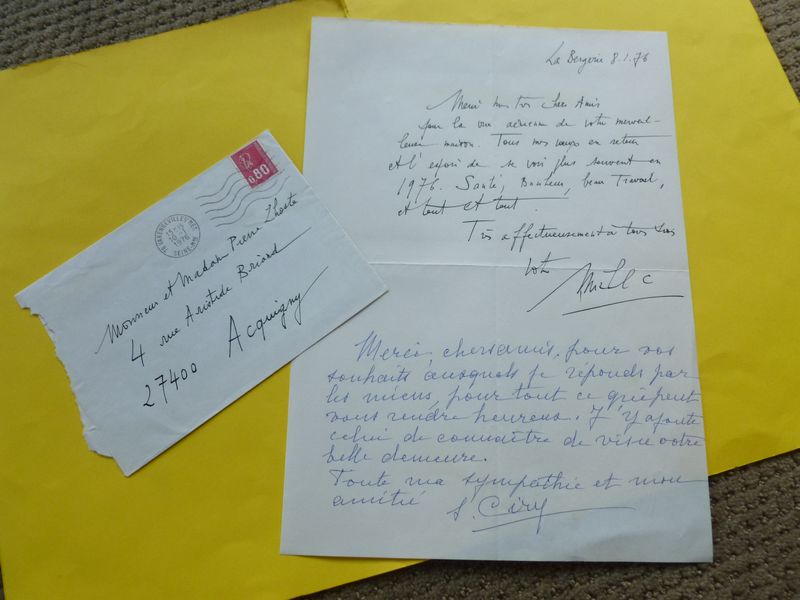 La Bergerie 8.1.76
Merci mes très chers Amis
pour la vue aérienne de votre merveil-
leuse maison. Tous mes voeux en retour
et l'espoir de se voir plus souvent en
1976. Santé, Bonheur, beau Travail,
et tout et tout.
Très affectueusement à tous trois
votre
Merci, chers amis, pour vos
souhaits auxquels je réponds par
les miens, pour tout ce qui peut
vous rendre heureux. J'y ajoute
celui de connaître de visu votre
belle demeure.
Toute ma sympathie et mon
amitié
S. Ciry
0.80
76 VARENGEVILLE S/MER
15H
10-1
1976
SEINE-MME
Monsieur et Madame Pierre Lhoste
4 rue Aristide Briand
27400 Acquigny